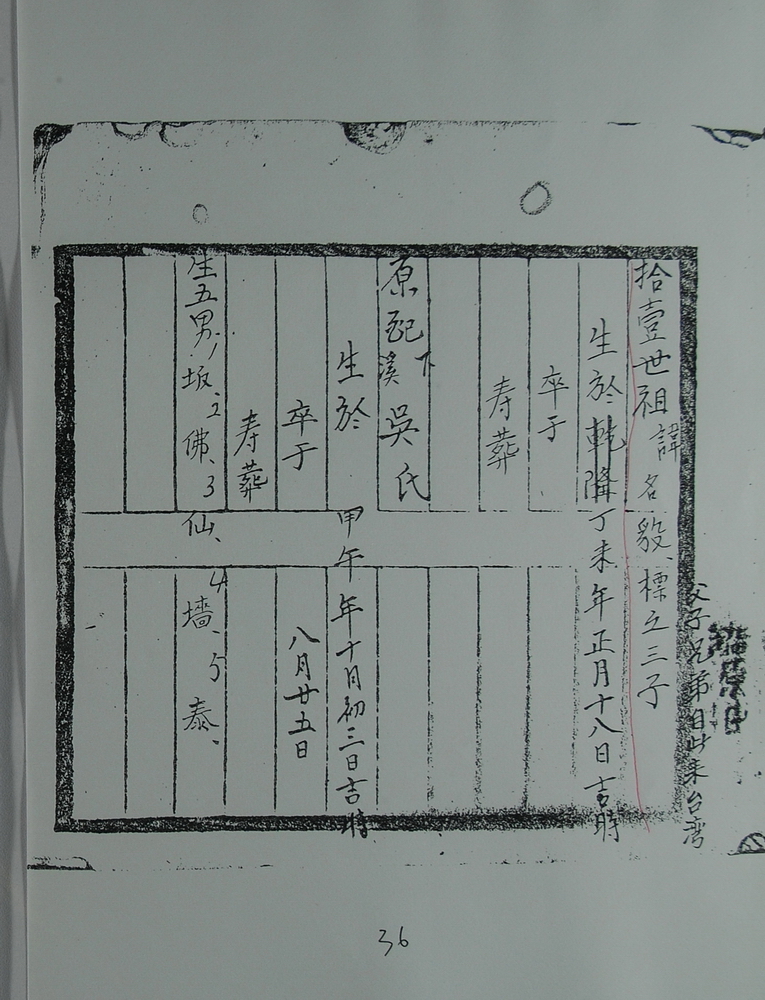 父子兄弟自此来台湾
拾壹世祖諱名毅、標之三子
生於乾隆丁未年正月十八日吉時
卒于
寿葬
原配下溪吳氏
生於甲午年十月初三日吉時
卒于八月廿五日
寿葬
生五男、1坂、2佛、3仙、4墙、5泰、
36